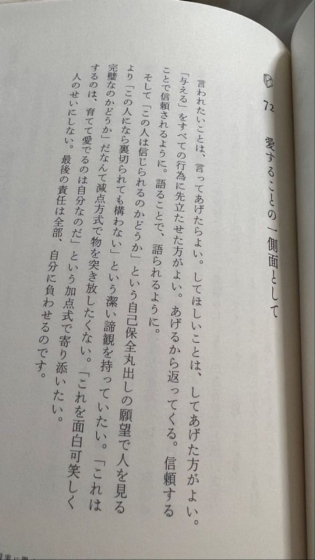 72 愛することの一側面として
言われたいことは、言ってあげたらよい。してほしいことは、してあげた方がよい。
「与える」をすべての行為に先立たせた方がよい。あげるから返ってくる。信頼する
ことで信頼されるように。語ることで、語られるように。
そして「この人は信じられるのかどうか」という自己保全丸出しの願望で人を見る
より「この人になら裏切られても構わない」という潔い諦観を持っていたい。「これは
完璧なのかどうか」だなんて減点方式で物を突き放したくない。「これを面白可笑しく
するのは、育てて愛でるのは自分なのだ」という加点式で寄り添いたい。
人のせいにしない。最後の責任は全部、自分に負わせるのです。